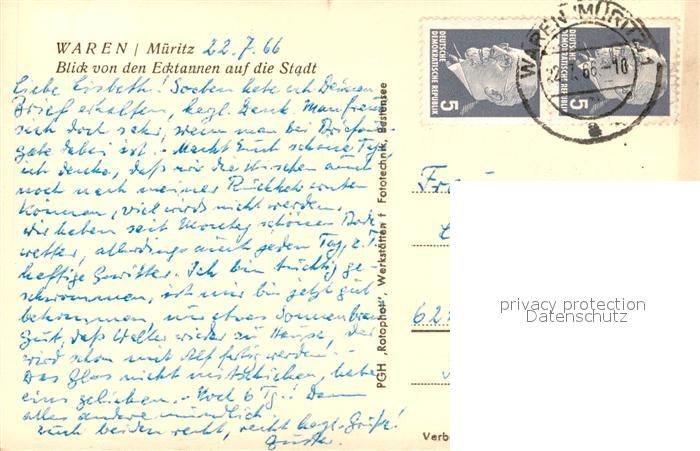 WAREN / Müritz 22.7.66
Blick von den Ecktannen auf die Stadt
Liebe Lisbeth! Soeben habe ich Deinen
Brief erhalten, hzgl. Dank. Man freut
sich doch sehr, wenn man bei Briefaus-
gabe dabei ist. - Macht Euch schöne Tage,
ich denke, daß wir die Kirschen auch
noch nach meiner Rückkehr ernten
können, viel wird's nicht werden.
Wir haben seit Montag schönes Bade-
wetter, allerdings auch jeden Tag, z. T.
heftige Gewitter. Ich bin tüchtig ge-
schwommen, ist mir bis jetzt gut
bekommen, nur etwas Sonnenbrand
Gut, daß Walter wieder zu Hause, der
wird schon mit Alf fertig werden. -
Das Glas nicht mitschicken, habe
eins geliehen. - Noch 6 Tg.! Dann
alles andere mündlich
Euch beiden recht, recht hzgl. Grüße!
PGH „Rotophot", Werkstätten f Fototechnik, Bestensee
DEUTSCHE DEMOKRATISCHE REPUBLIK
5
DEUTSCHE DEMOKRATISCHE REPUBLIK
5
WAREN (MÜRITZ) 1
66 - 18
a
Frau
62
Verb
privacy protection
Datenschutz